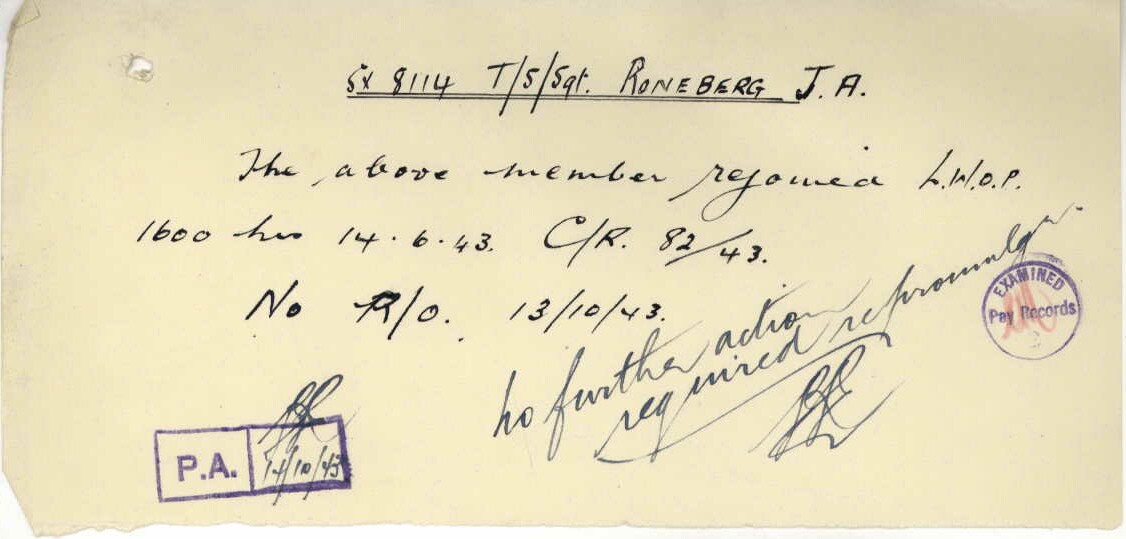 SX 8114 T/S/Sgt. RONEBERG J.A.
The above member rejoined L.W.O.P.
1600 hrs 14.6.43. C/R. 82/43.
No R/O. 13/10/43.
no further action
required
EXAMINED
Pay Records
P.A.
14/10/43